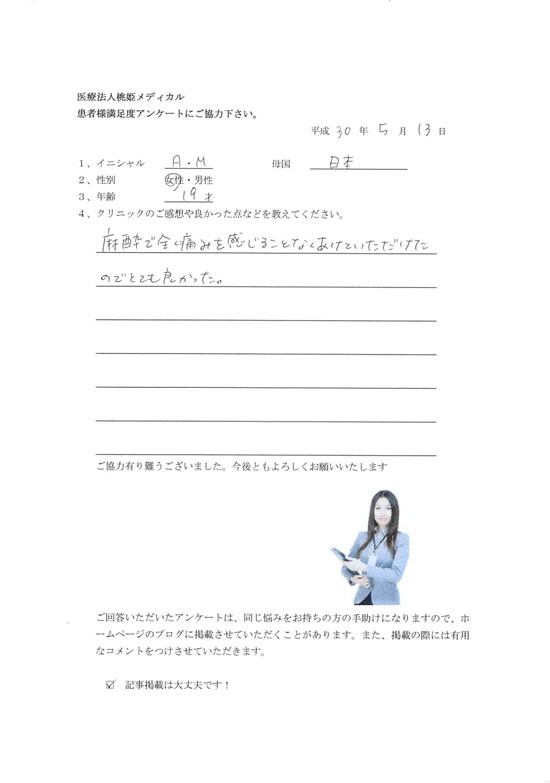 医療法人桃姫メディカル
患者様満足度アンケートにご協力下さい。
平成 30 年 5 月 13 日
1、イニシャル A・M 母国 日本
2、性別 女性・男性
3、年齢 19才
4、クリニックのご感想や良かった点などを教えてください。
麻酔で全く痛みを感じることなくあけていただけた
のでとても良かった。
ご協力有り難うございました。今後ともよろしくお願いいたします
ご回答いただいたアンケートは、同じ悩みをお持ちの方の手助けになりますので、ホ
ームページのブログに掲載させていただくことがあります。また、掲載の際には有用
なコメントをつけさせていただきます。
☑ 記事掲載は大丈夫です！